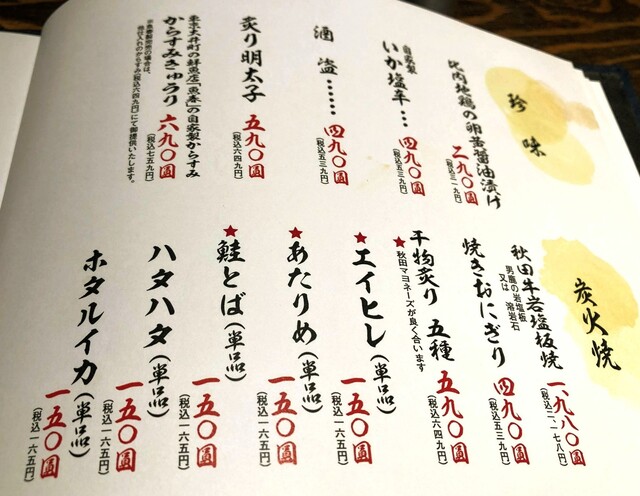 珍味
比内地鶏の卵黄醤油漬け
二九〇圓
(税込三一九円)
自家製
いか塩辛…
四九〇圓
(税込五三九円)
酒盗……
四九〇圓
(税込五三九円)
炙り明太子
五九〇圓
(税込六四九円)
東京大井町の鮮魚店「魚春」の自家製からすみ
からすみきゅうり
六九〇圓
(税込七五九円)
(税込六四九円)にて御提供いたします。
炭火焼
秋田牛岩塩板焼
男鹿の岩塩板
又は 溶岩石
一、九八〇圓
(税込二、一七八円)
焼きおにぎり
四九〇圓
(税込五三九円)
干物炙り 五種
★秋田マヨネーズが良く合います
五九〇圓
(税込六四九円)
★エイヒレ(単品)
一五〇圓
(税込一六五円)
★あたりめ(単品)
一五〇圓
(税込一六五円)
★鮭とば(単品)
一五〇圓
(税込一六五円)
ハタハタ(単品)
一五〇圓
(税込一六五円)
ホタルイカ(単品)
一五〇圓
(税込一六五円)